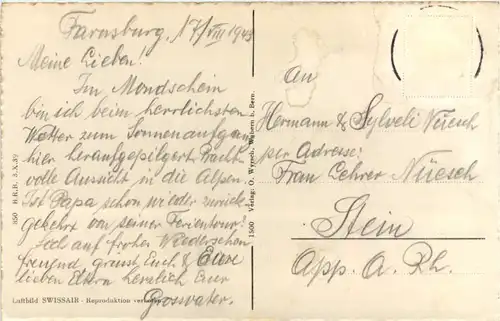 Farnsburg, 17/VIII 1943
Meine Lieben!
Im Mondschein
bin ich beim herrlichsten
Wetter zum Sonnenaufgang
hier heraufgepilgert. Pracht-
volle Aussicht in die Alpen.
Ist Papa schon wieder zurück-
gekehrt von seiner Ferientour.
Sich auf frohes Wiedersehen
freuend grüsst Euch & Eure
lieben Eltern herzlich Euer
Grossvater.
An
Hermann & Sylveli Nüesch
per Adresse:
Frau Lehrer Nüesch
Stein
App. A. Rh.
850 B.R.B. 3.X.39
1500 Verlag: O. Wyrsch, Wabern b. Bern.
Luftbild SWISSAIR - Reproduktion